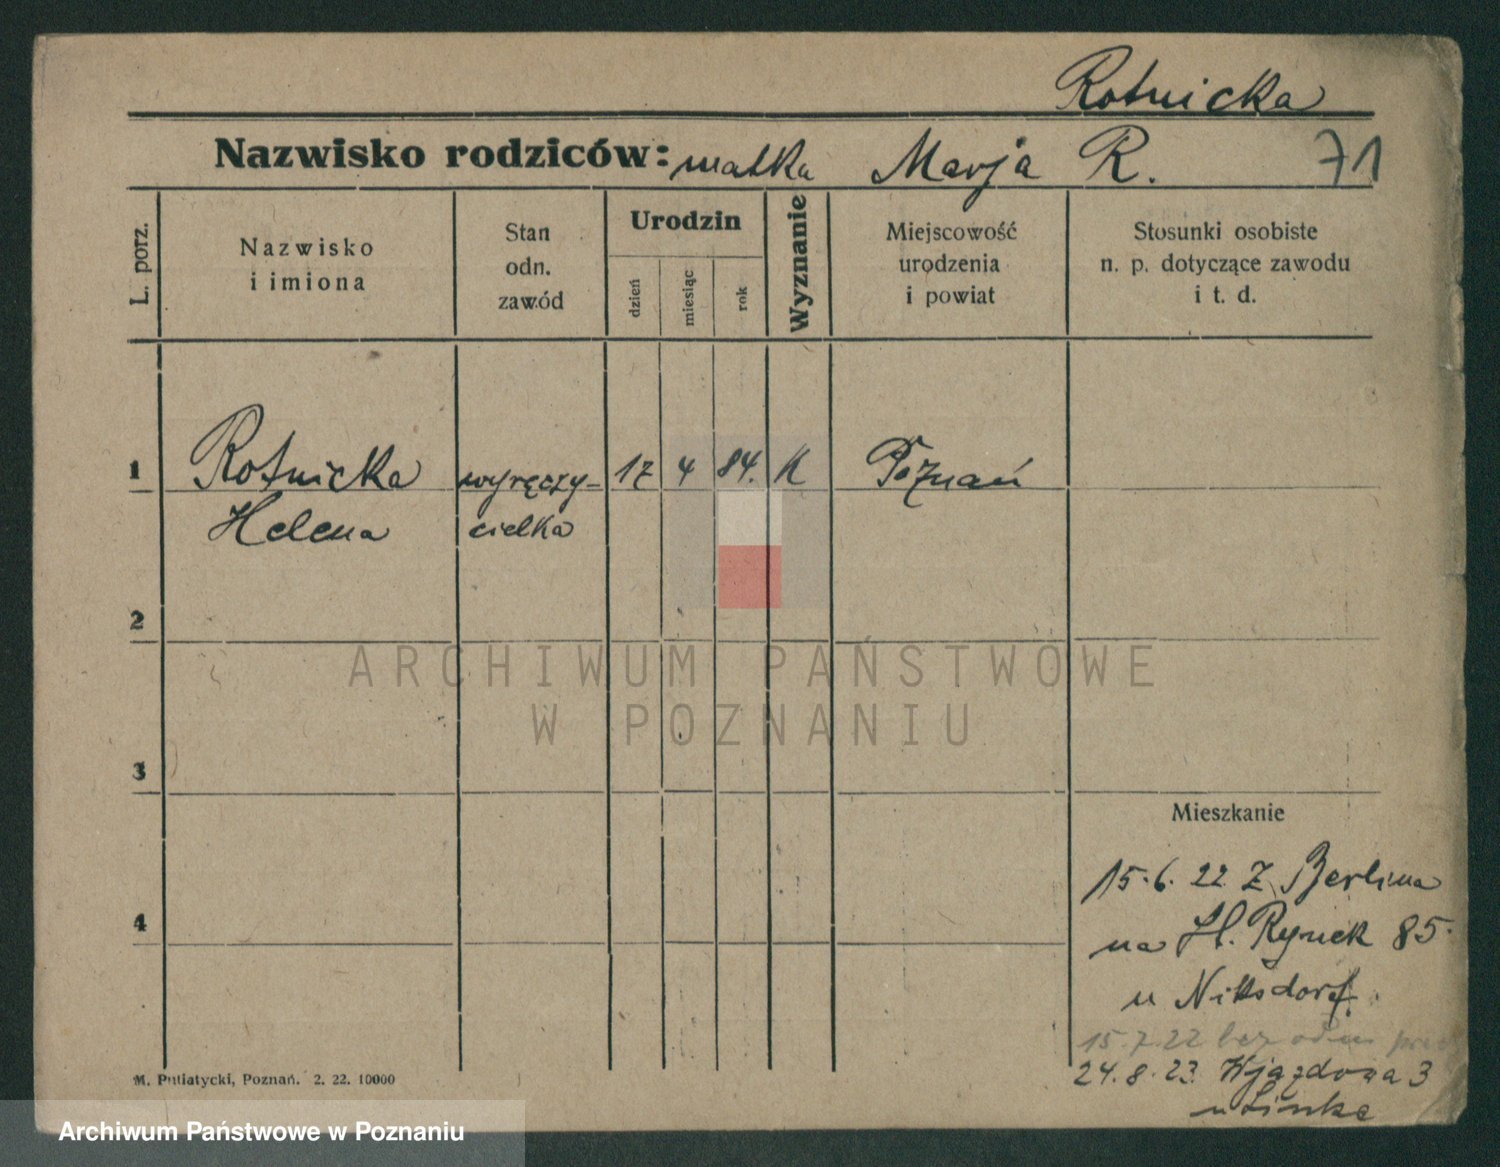 Rotnicka
Nazwisko rodziców: matka Marja R. 71
L. porz.
Nazwisko
i imiona
Stan
odn.
zawód
Urodzin
dzień
miesiąc
rok
Wyznanie
Miejscowość
urodzenia
i powiat
Stosunki osobiste
n. p. dotyczące zawodu
i t. d.
1 Rotnicka wyręczy- 17 4 84. K Poznań
Helena cielka
2
3
4
Mieszkanie
15.6.22 Z Berlina
na St. Rynek 85.
u Niksdorf.
15.7.22 bez odm
24.8.23 Wjazdowa 3
u Linke
M. Putiatycki, Poznań. 2. 22. 10000
ARCHIWUM PAŃSTWOWE
W POZNANIU
Archiwum Państwowe w Poznaniu